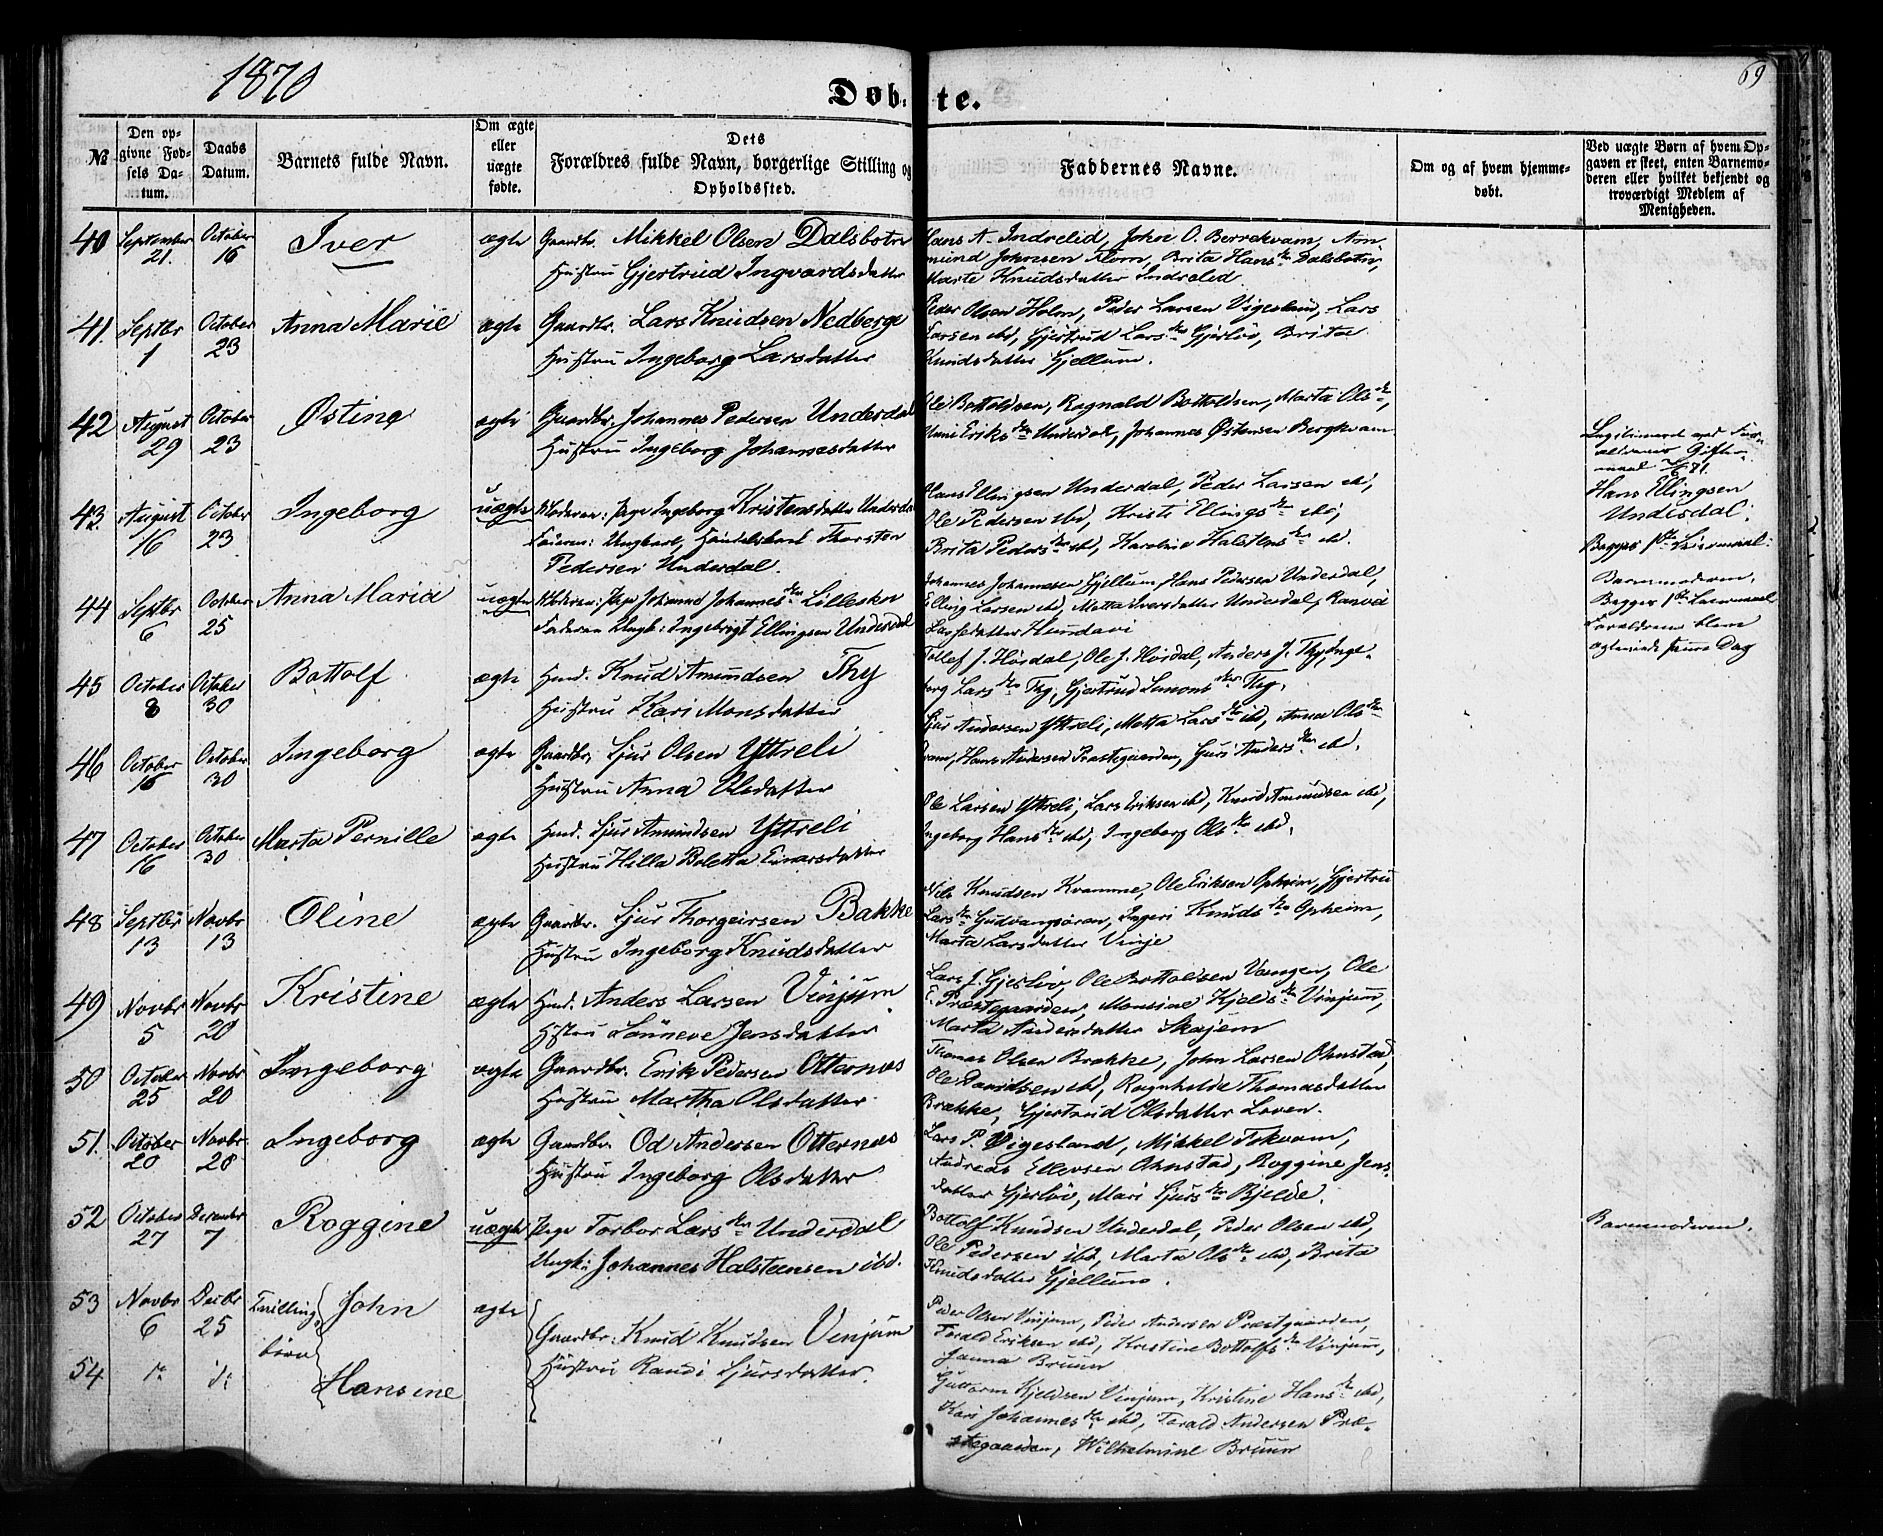 1870
Døb-te.
69
№
Den opgivne Fødsels Datum.
Daabs Datum.
Barnets fulde Navn.
Om ægte eller uægte fødte.
Dets Forældres fulde Navn, borgerlige Stilling og Opholdssted.
Faddernes Navne.
Om og af hvem hjemmedøbt.
Ved uægte Børn af hvem Opgaven er skeet, enten Barnemoderen eller hvilket bekjendt og troværdigt Medlem af Menigheden.
40 September 21. October 16 Iver ægte Gaardbr. Mikkel Olsen Dalsbotn
Hustru Gjertrud Ingvardsdatter
Hans A. Indrelid, John O. Berrekvam, Am-
mund Johnsen Flom, Brita Hans dtr Dalsbotn,
Marte Knudsdatter Indrelid.
41. Septbr 1 October 23 Anna Marie ægte Gaardbr. Lars Knudsen Nedberge
Hustru Ingeborg Larsdatter
Peder Olsen Holm, Peder Larsen Vigesland, Lars
Larsen ibd, Gjertrud Lars dtr Gjerløv, Brita
Knudsdatter Gjellum.
42 August 29 October 23 Østine ægte Gaardbr. Johannes Pedersen Underdal
Hustru Ingeborg Johannesdatter
Ole Bottolfsen, Ragnald Bottolfsen, Marta Ols dtr,
Unni Eriks dtr Underdal, Johannes Østensen Bergkvam
43 August 16 October 23 Ingeborg uægte Moderen: Pige Ingeborg Kristensdatter Underdal
Faderen: Ungkarl, Handelskarl Thorsten
Pedersen Underdal.
Hans Ellingsen Underdal, Peder Larsen ibd,
Ole Pedersen ibd, Kristi Ellings dtr ibd,
Brita Peders dtr ibd, Karoline Halstens dtr ibd.
Legitimeret ved For-
ældrenes Gifter-
maal
Hans Ellingsen
Underdal.
Begges 1ste Leiermaal.
44 Septbr 6 October 25 Anna Maria uægte Moderen: Pige Johanne Johannes dtr Lilleskor
Faderen Ungk: Ingebrigt Ellingsen Underdal
Johannes Johannesen Gjellum, Hans Pedersen Underdal,
Elling Larsen ibd, Metta Iversdatter Underdal, Ranvei
Larsdatter
Barnemoderen.
Begges 1ste Leiermaal
Forældrene bleve
ægteviede samme Dag
45 October 8 October 30 Bottolf ægte Husd. Knud Amundsen Thy
Hustru Kari Monsdatter
Tollef J. Høidal, Ole J. Høidal, Anders J. Thy, Inge-
borg Lars dtr Thy, Gjertrud Simons dtr Thy.
46 October 16 October 30 Ingeborg ægte Gaardbr, Sjur Olsen Yttreli
Hustru Anna Olsdatter
Sjur Andersen Yttreli, Metta Lars dtr ibd, Anna Ols dtr
Hans Andersen Præstegaarden, Guri Anders dtr ibd.
47 October 16 October 30 Marta Pernille ægte Husd. Sjur Amundsen Yttreli
Hustru Hilla Boletta Einarsdatter
Ole Larsen Yttreli, Lars Eriksen ibd, Knud Amundsen ibd,
Ingeborg Hans dtr ibd, Ingeborg Ols dtr ibd.
48 Septbr 13 Novbr 13 Oline ægte Gaardbr. Sjur Thorgeirsen Bakke
Hustru Ingeborg Knudsdatter
Nils Knudsen Kvamme, Ole Eriksen Opheim, Gjertru
Lars dtr Gudvangsøren, Ingeri Knuds dtr Opheim,
Marta Larsdatter Vinje
49 Novbr 5 Novbr 20 Kristine ægte Husd. Anders Larsen Vinjum
Hustru Sønneve Jensdatter
Lars J. Gjerløv, Ole Bottolfsen Vangen, Ole
E. Præstegaarden, Monsine Kjelds dtr Vinjum,
Marta Andersdatter Skajem
50 October 25 Novbr 20 Ingeborg ægte Gaardbr. Erik Pedersen Otternæs
Hustru Martha Olsdatter
Thomas Olsen Brække, John Larsen Ohnstad,
Ole Davidsen ibd, Ragnhilda Thomasdatter
Brække, Gjertrud Olsdatter Loven.
51. October 20 Novbr. 28 Ingeborg ægte Gaardbr. Od Andersen Otternæs
Hustru Ingeborg Olsdatter
Lars P. Vigesland, Mikkel Tokvam,
Andreas Ellevsen Ohnstad, Roggine Jens-
datter Gjerløv, Mari Sjurs dtr Bjelde.
52 October 27 December 7 Roggine uægte Pige Torbor Lars dtr Underdal
Ungk: Johannes Halsteensen ibd.
Bottolf Knudsen Underdal, Peder Olsen ibd,
Ole Pedersen ibd, Marta Ols dtr ibd, Brita
Knudsdatter Gjellum.
Barnemoderen.
53 Novbr 6 Decbr 25 Tvillingbørn John ægte Gaardbr. Knud Knudsen Vinjum
Hustru Randi Sjursdatter.
Peder Olsen Vinjum, Peder Andersen Præstgaarden,
Torald Eriksen ibd, Kristine Bottolfs dtr Vinjum,
Janna Bruun
54 do do Hansine
Guttorm Kjeldsen Vinjum, Kristine Hans dtr ibd,
Kari Johannes dtr ibd, Torald Andersen Præ-
stegaarden, Wilhelmine Bruun